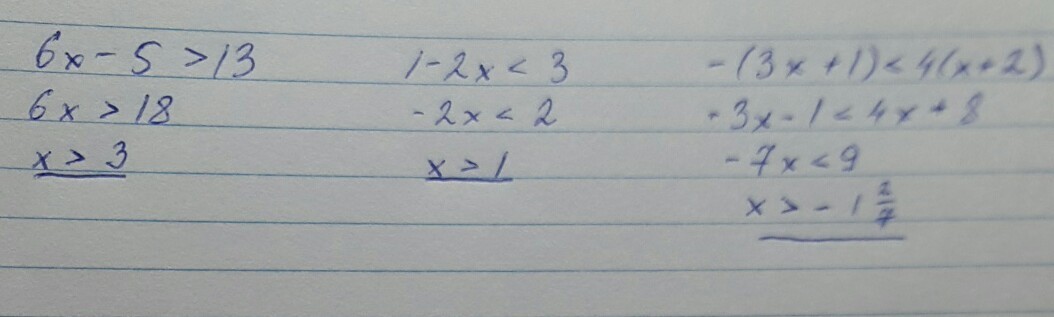 6x - 5 > 13
6x > 18
x > 3
1 - 2x < 3
-2x < 2
x > 1
-(3x + 1) < 4(x + 2)
-3x - 1 < 4x + 8
-7x < 9
x > -1 2/7